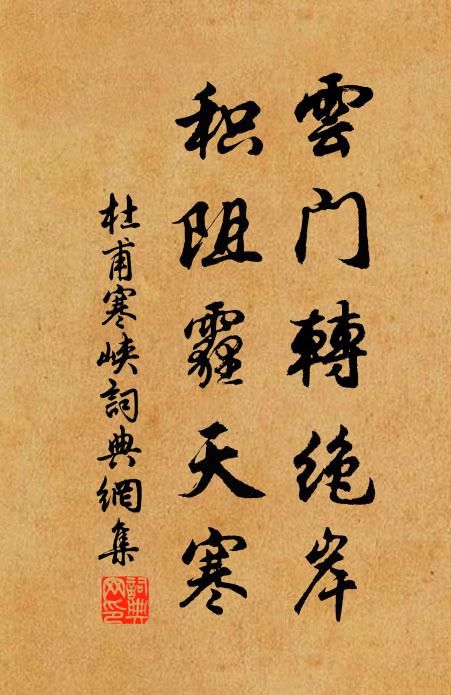 雲门轉绝岸
积阻霾天寒
杜甫寒峡詞典網集
詞典网印